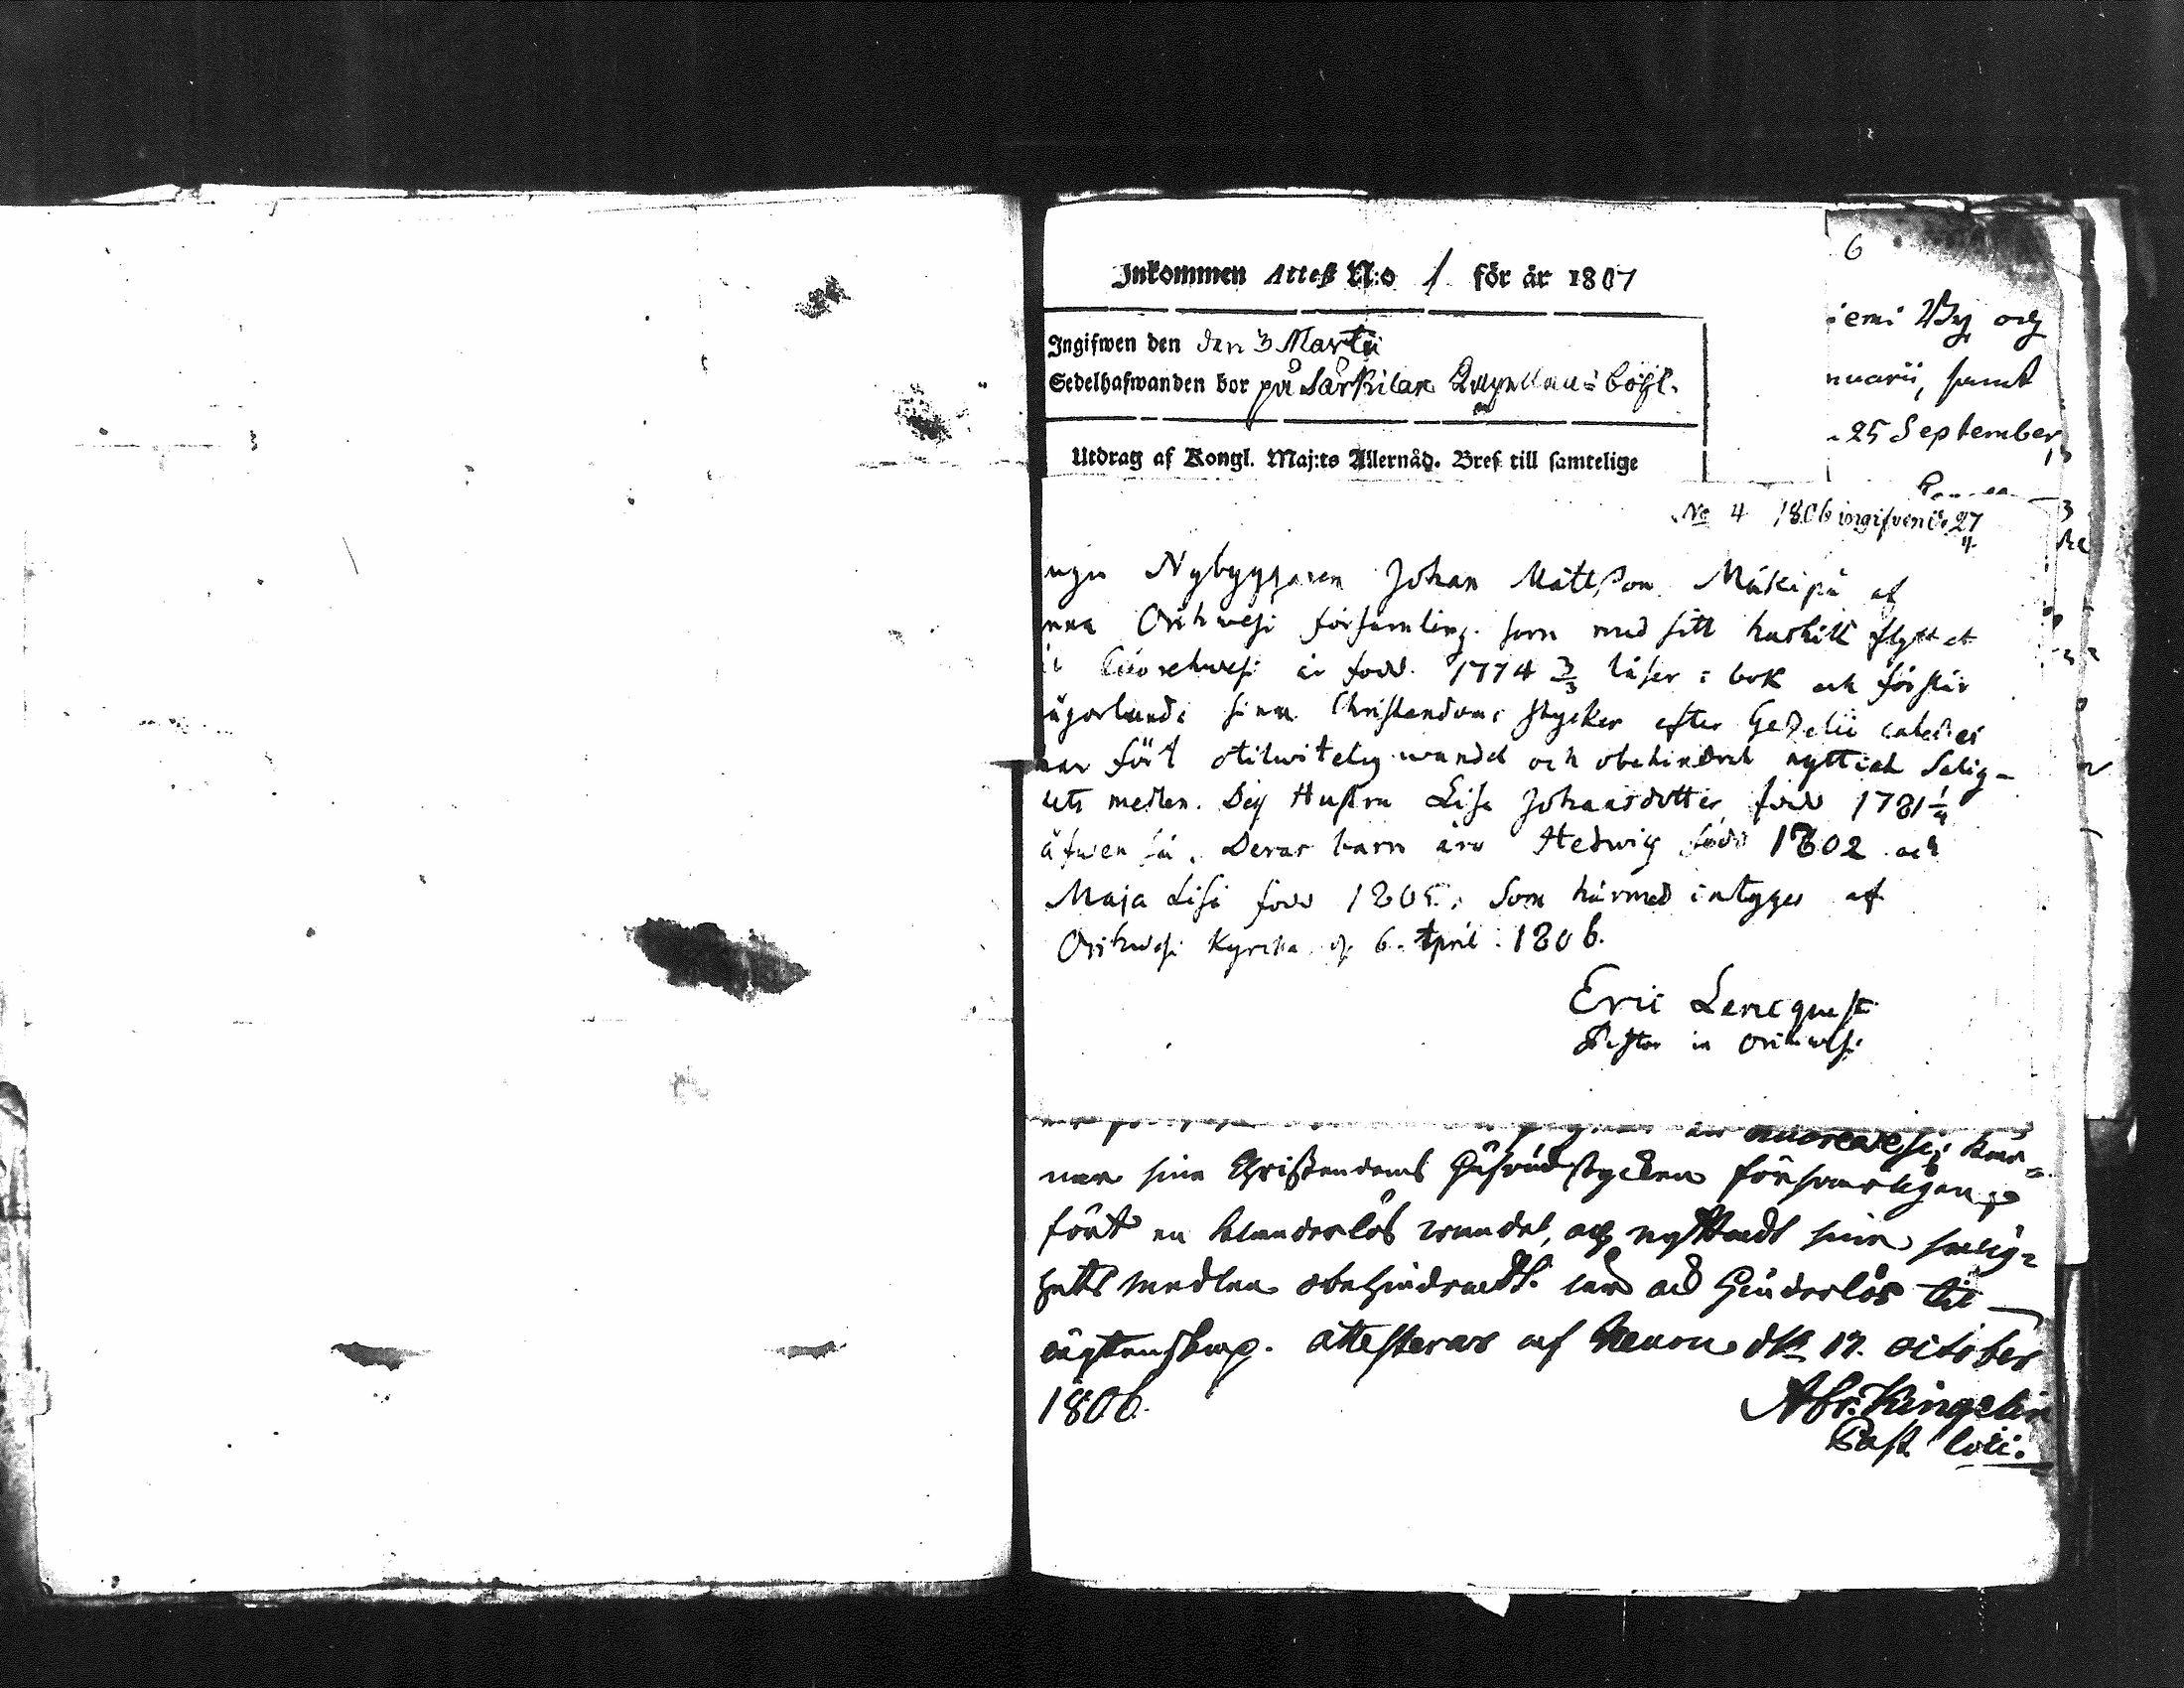 Inkommen Attest N:o 1 för år 1807
Ingifwen den den 3 Martii
Sedelhafwanden bor på Särkilax
Utdrag af Kongl. Maj:ts Allernåd. Bref till samtelige
6
iemi By och
nuarii, samt
25 September
No 4 1806 ingifven d. 27/4
Nybyggaren Johan Mattsson Mäkipä af
Orihwesi församling som med sitt hushåll flyttat
är född 1774 3/3 läser i bok och förstår
sina Christendoms stycker efter Gezelii
har fört otilwitelig wandel och obehindrat nyttiat Salig-
hets medlen. Deß Hustru Lisa Johansdotter född 1781 1/4
äfwen så. Deras barn äro Hedwig född 1802 och
Maja Lisa född 1805. Som härmed intygges af
Orihwesi Kyrcka d. 6. April 1806.
Eric Lencquist
Pastor in Orihwesi
Kuorewesi; kän-
ner sina Christendoms Hufwudstycken försvarligen,
fört en klanderlös wandel, och nyttiadt sina salig-
hets medlen obehindradt. Hinderlös til
ägtenskap. attesteras af Keuru d. 17. october
1806. Abr. Kingelin
Past. loci.